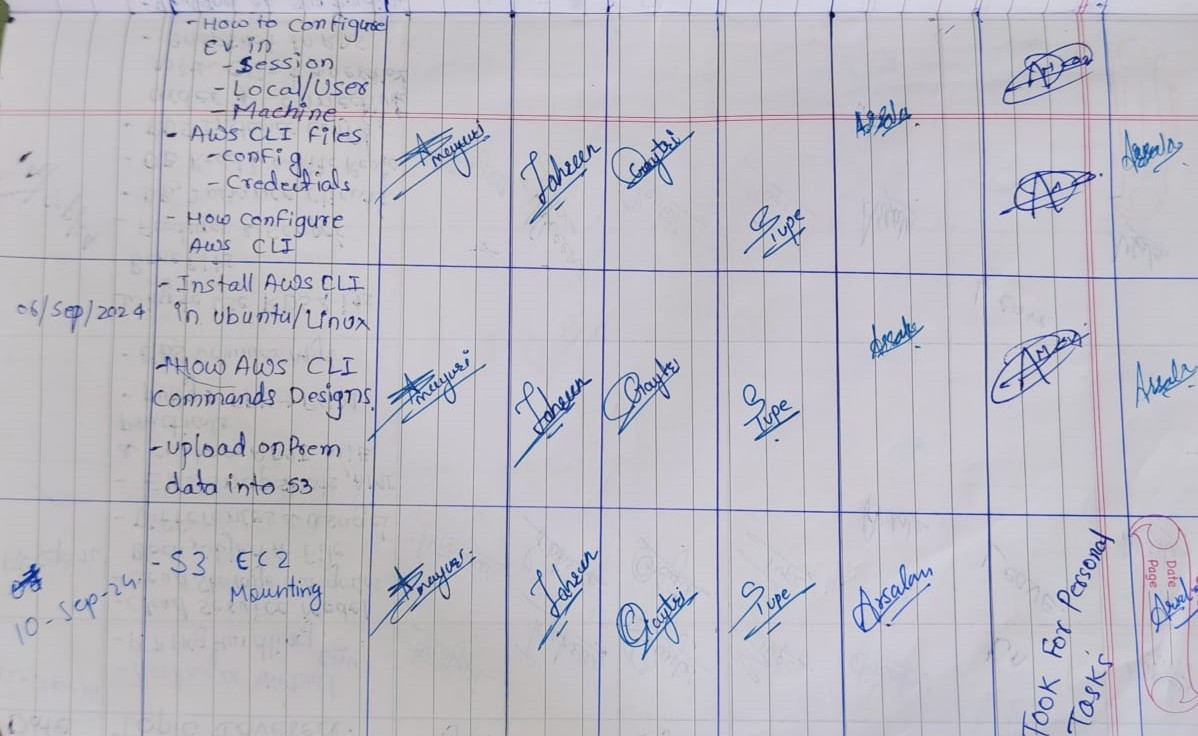 - How to configure
EV in
- Session
- Local/User
- Machine
- AWS CLI files
- config
Credectials
- How configure
AWS CLI
Amayuri
Tahseen
Gaytri
Tupe
06/Sep/2024
- Install AWS CLI
in ubuntu/Linux
- How AWS CLI
commands Designs
- upload onPrem
data into S3
Amayuri
Tahseen
Gaytri
Tupe
10-Sep-24
- S3 EC2
Mounting
Tahseen
Gaytri
Tupe
Arsalan
TOOK For Personal
Tasks
Date
Page